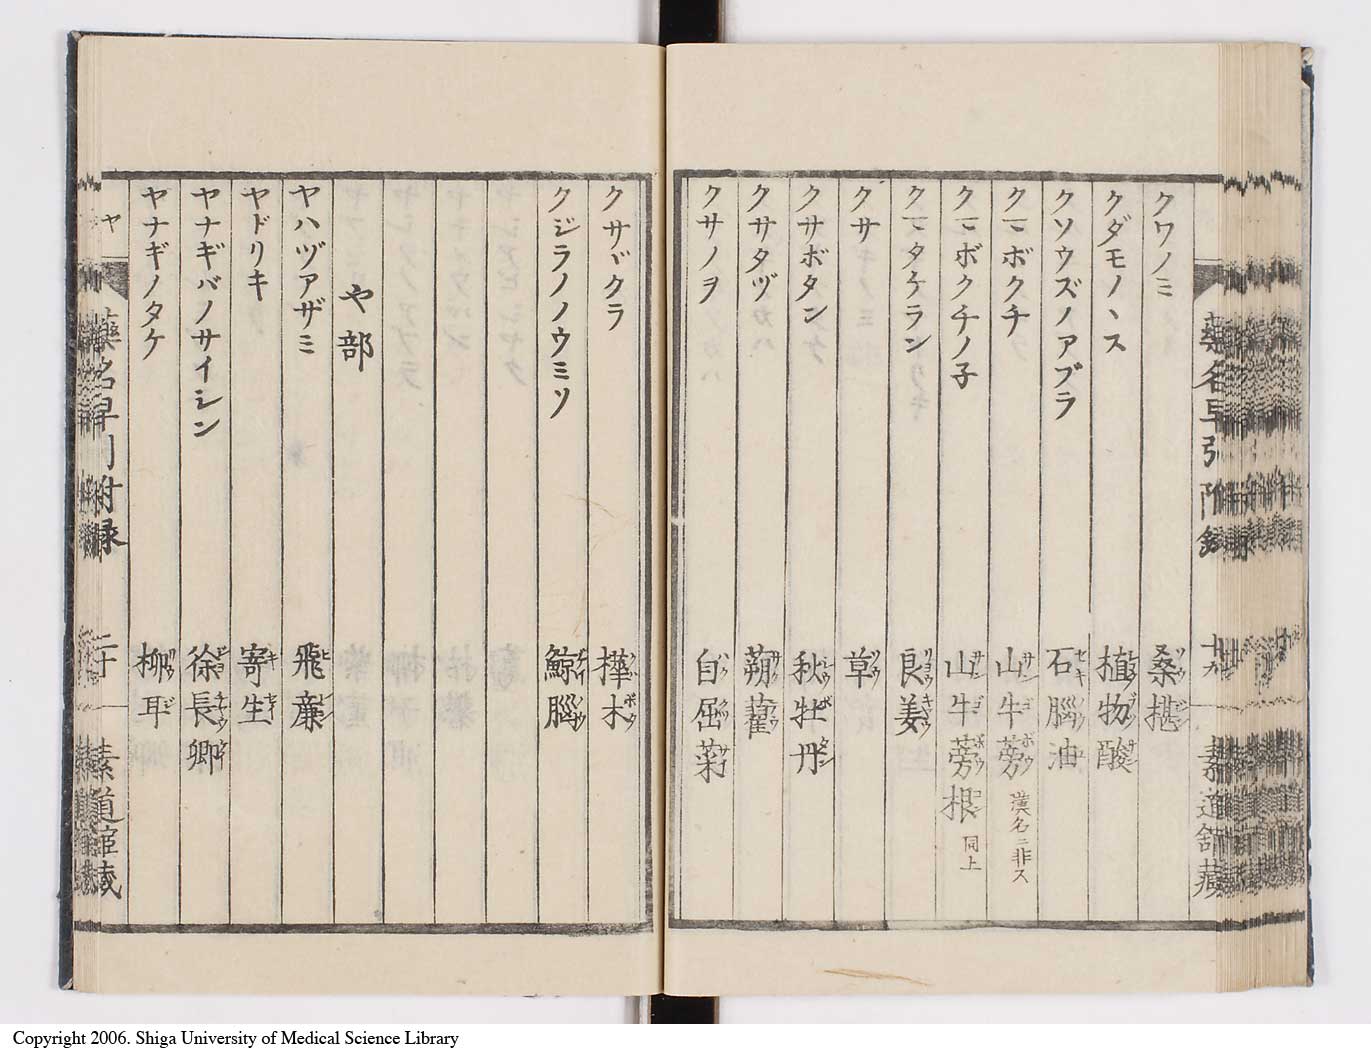 藥名早引附録 十九 素道舘藏
クワノミ 桑椹
クダモノヽス 植物酸
クソウズノアブラ 石腦油
クマボクチ 山牛蒡 漢名ニ非ス
クマボクチノ子 山牛蒡根 同上
クマタケラン 良姜
クサ 草
クサボタン 秋牡丹
クサタヅ 蒴藋
クサノヲ 白屈菜
クサヾクラ 樺木
クジラノノウミソ 鯨腦
や部
ヤハヅアザミ 飛廉
ヤドリキ 寄生
ヤナギバノサイシン 徐長卿
ヤナギノタケ 柳耳
ヤ 藥名早引附録 二十 素道舘藏
Copyright 2006. Shiga University of Medical Science Library